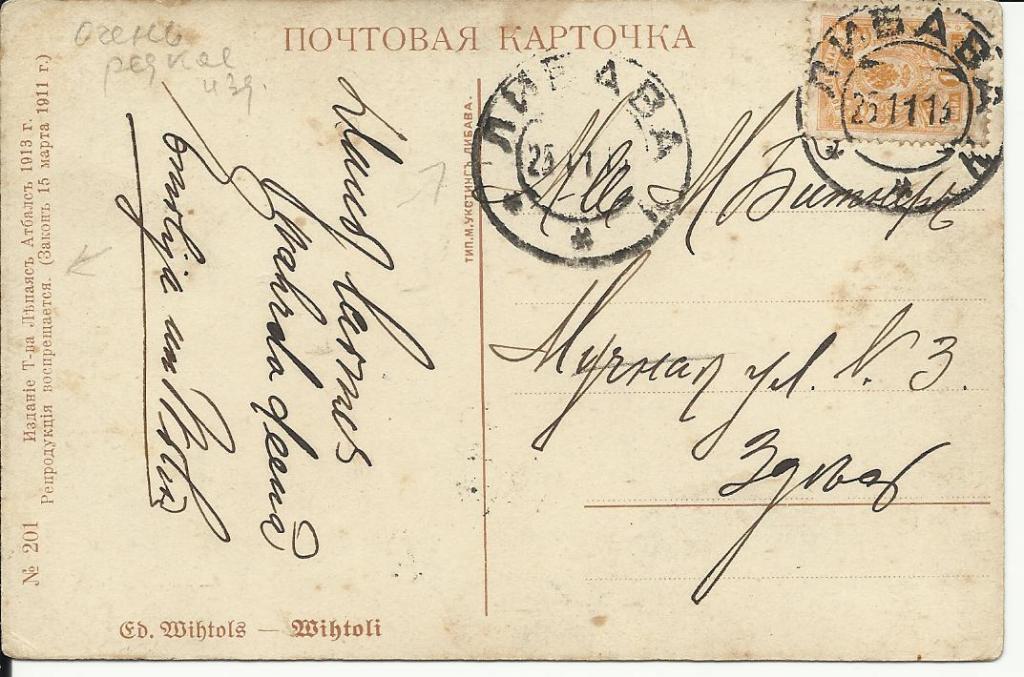 ПОЧТОВАЯ КАРТОЧКА
очень
редкое
изд.
ЛИБАВА
25 11 13
ЛИБАВА
25 11 1
М. Битнеръ
Мучная ул. N. 3.
Здѣсь
ТИП. М. УКСТИНГЪ, ЛИБАВА.
vārda deenā
Ed. Wihtols — Wihtoli
№ 201 Изданіе Т-ва Лѣпаясъ Атбалсъ 1913 г.
Репродукція воспрещается. (Законъ 15 марта 1911 г.)